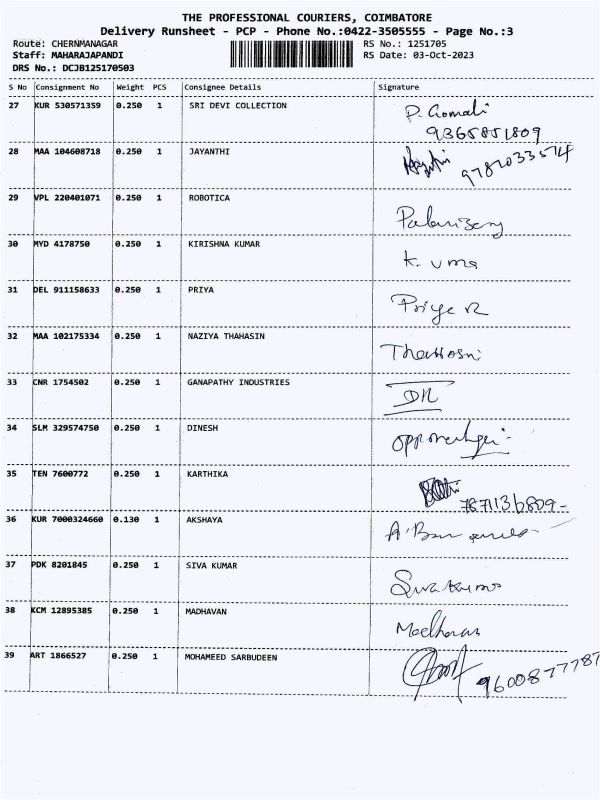 THE PROFESSIONAL COURIERS, COIMBATORE
Delivery Runsheet - PCP - Phone No.:0422-3505555 - Page No.:3
Route: CHERNMANAGAR RS No.: 1251705
Staff: MAHARAJAPANDI RS Date: 03-Oct-2023
DRS No.: DCJB125170503
S No Consignment No Weight PCS Consignee Details Signature
27 KUR 530571359 0.250 1 SRI DEVI COLLECTION P. Gomali
9365851809
28 MAA 104608718 0.250 1 JAYANTHI
29 VPL 220401071 0.250 1 ROBOTICA
30 MYD 4178750 0.250 1 KIRISHNA KUMAR K. Uma
31 DEL 911158633 0.250 1 PRIYA Priya R
32 MAA 102175334 0.250 1 NAZIYA THAHASIN
33 CNR 1754502 0.250 1 GANAPATHY INDUSTRIES
34 SLM 329574750 0.250 1 DINESH
35 TEN 7600772 0.250 1 KARTHIKA
7871136809
36 KUR 7000324660 0.130 1 AKSHAYA
37 PDK 8201845 0.250 1 SIVA KUMAR Sivakumar
38 KCM 12895385 0.250 1 MADHAVAN Madhavan
39 ART 1866527 0.250 1 MOHAMEED SARBUDEEN 9600877787